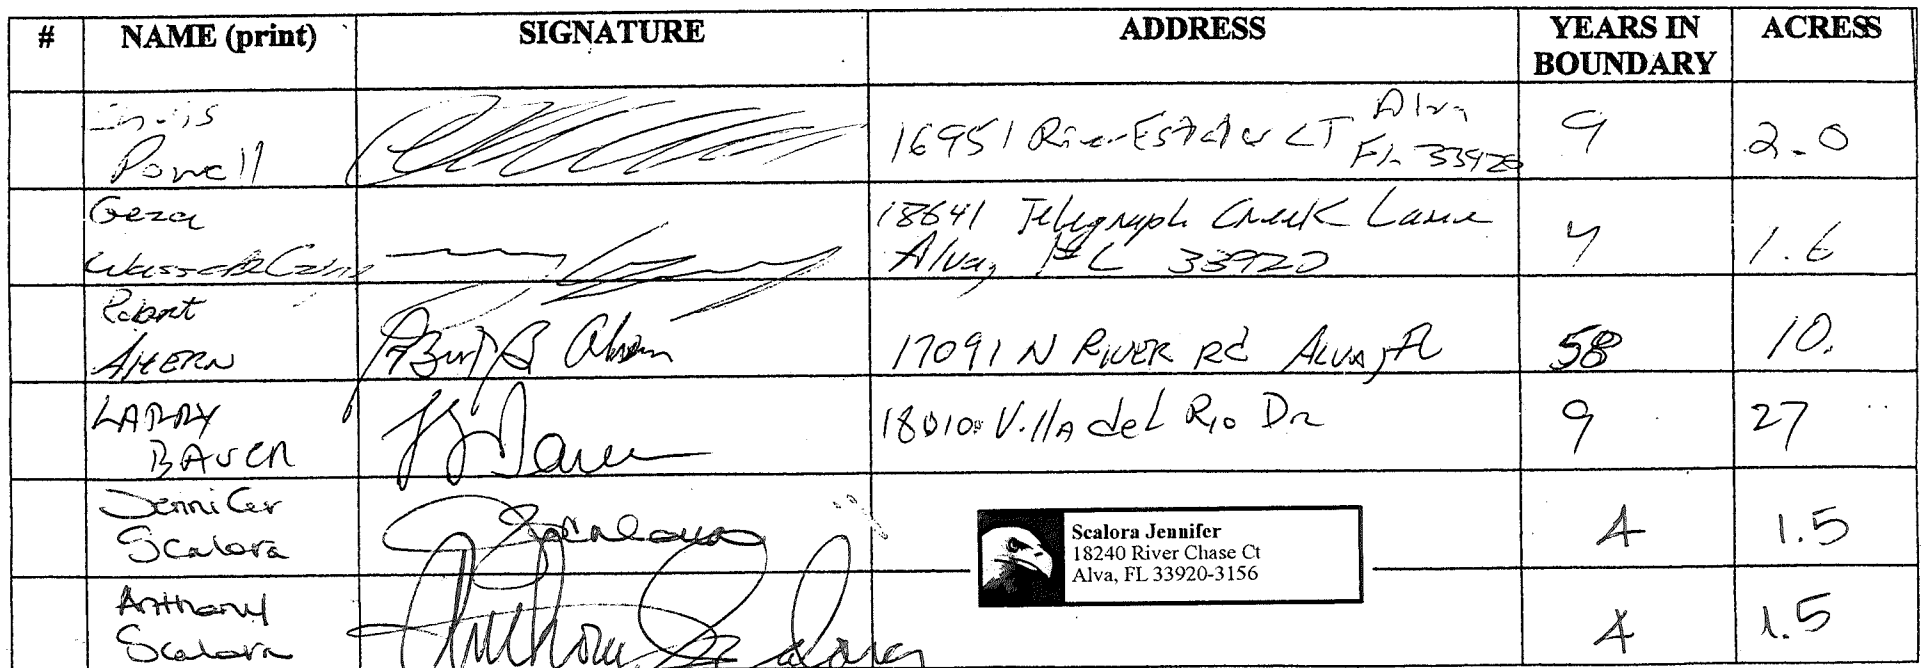 # NAME (print) SIGNATURE ADDRESS YEARS IN BOUNDARY ACRESS
Powell 16951 River Estates CT Alva FL 33920 9 2.0
Geza 18641 Telegraph Creek Lane
Alva, FL 33920 4 1.6
Robert
AHERN 17091 N RIVER Rd ALVA, FL 58 10.
LARRY
BAUER 18010 Villa del Rio Dr 9 27
Jennifer
Scalora Scalora 4 1.5
Scalora Jennifer
18240 River Chase Ct
Alva, FL 33920-3156
Anthony
Scalora Anthony Scalora 4 1.5